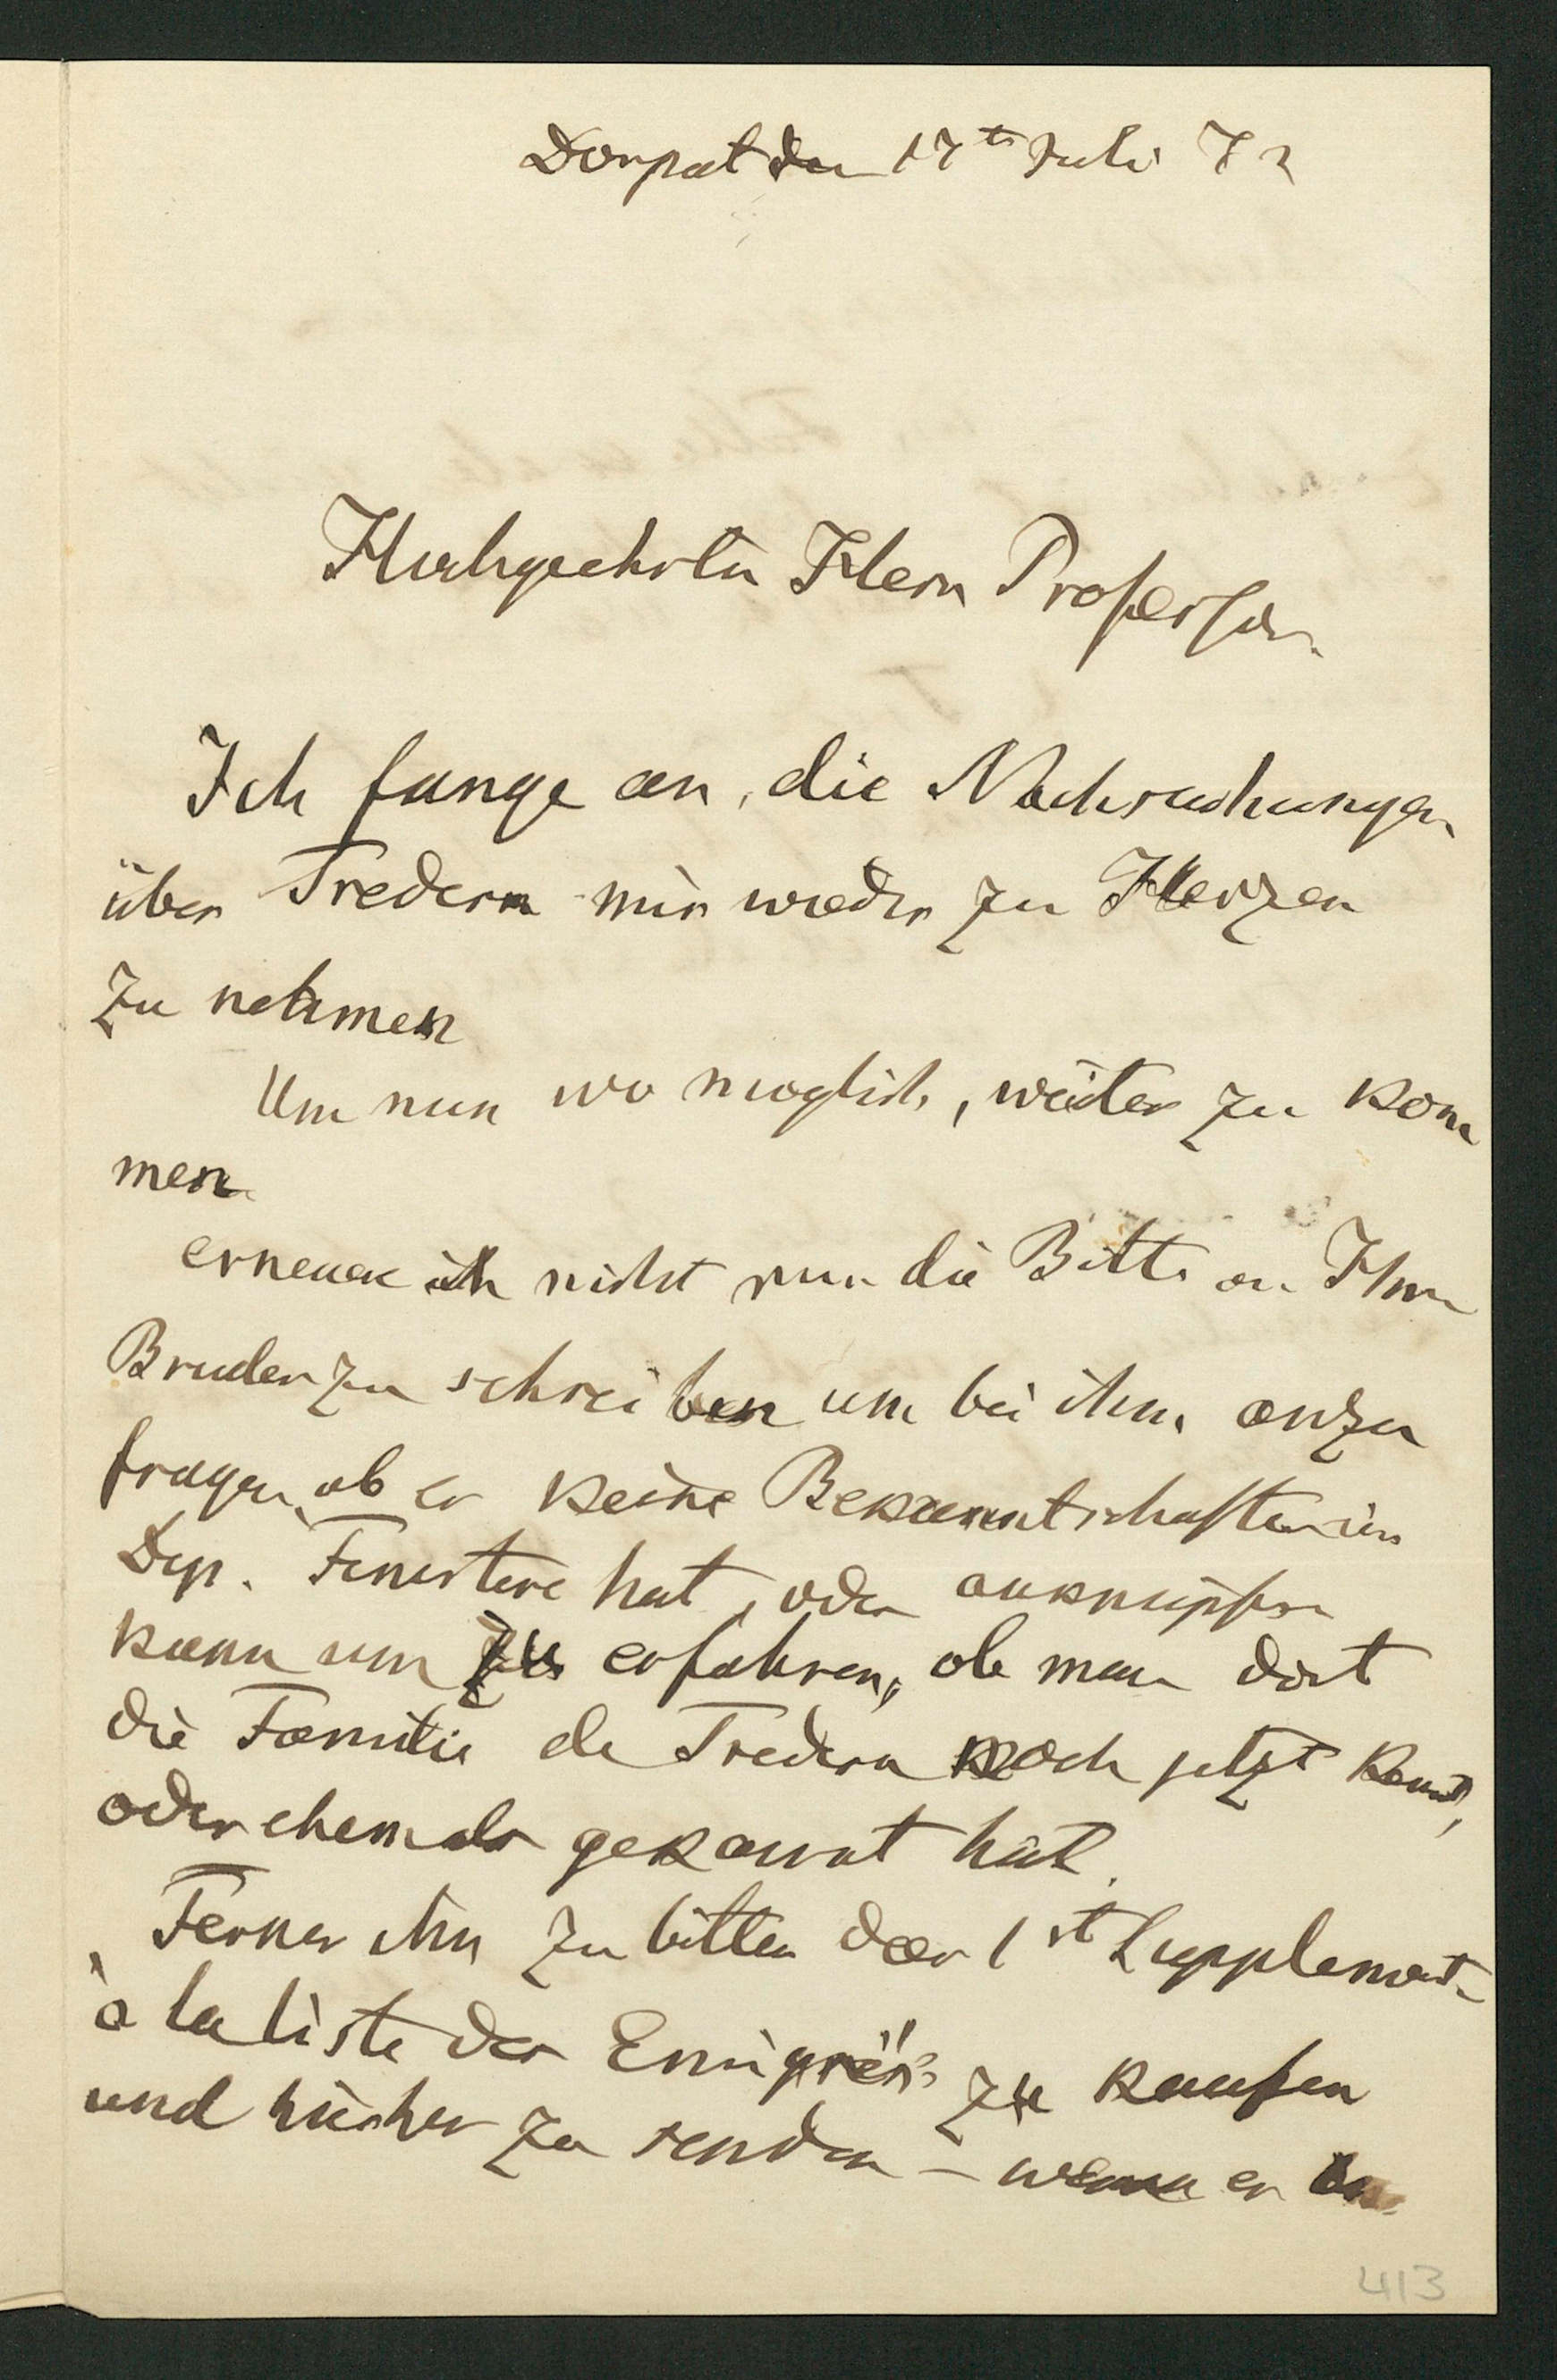 Dorpat den 17ten Juli 72
Hochgeehrter Herr Professor
Ich fange an, die Nachsuchungen
über Tredern mir wieder zu Herzen
zu nehmen
Um nun wo moglich, weiter zu kom
men
erneuere ich nicht nur die Bitte an Ihren
Bruder zu schreiben um bei ihm anzu
fragen, ob er keine Bekanntschaften im
Dep. Finistere hat, oder anknüpfen
kann um zu erfahren, ob man dort
die Familie de Tredern noch jetzt kennt,
oder ehemals gekannt hat.
Ferner ihn zu bitten das 1st Supplement
à la liste des Emigrés zu kaufen
und hieher zu senden – wenn er
413